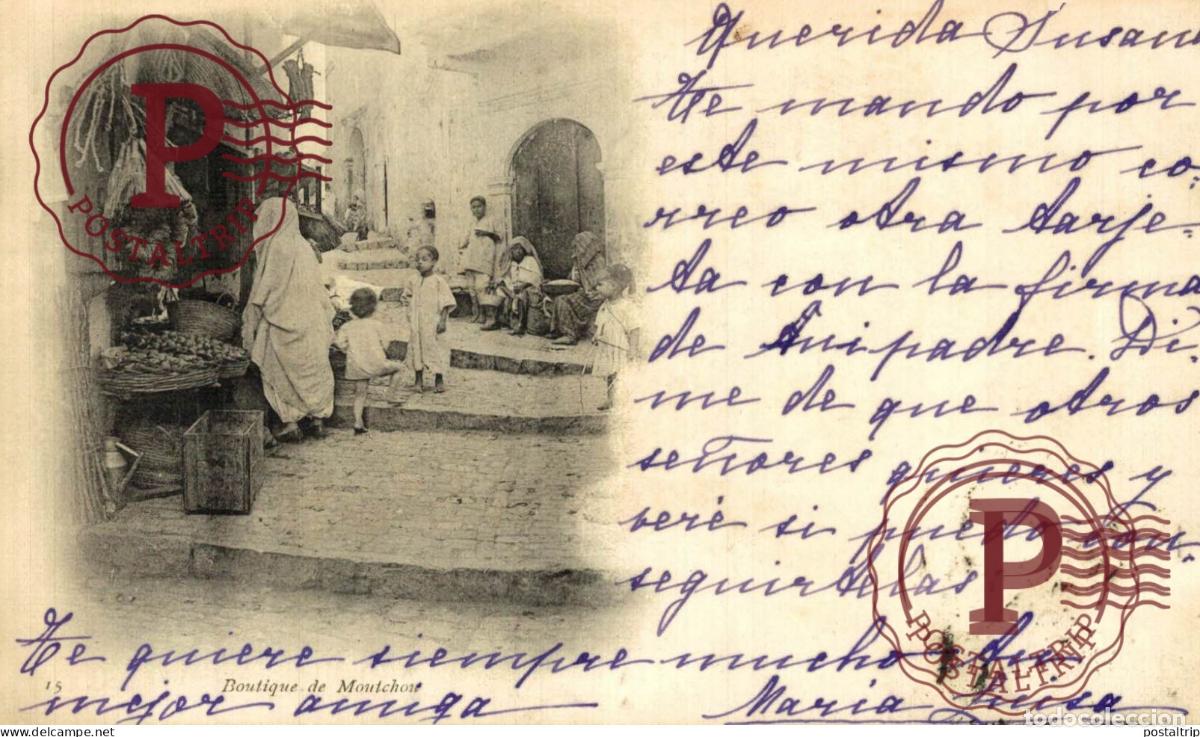 Querida Susana
Te mando por
este mismo co-
rreo otra tarje-
ta con la firma
de mi padre. Di-
me de que otros
señores quieres y
veré si puedo con-
seguirtelas
Te quiere siempre mucho tu
mejor amiga María Luisa
15 Boutique de Moutchou
POSTALTRIP
POSTALTRIP
todocoleccion
postaltrip